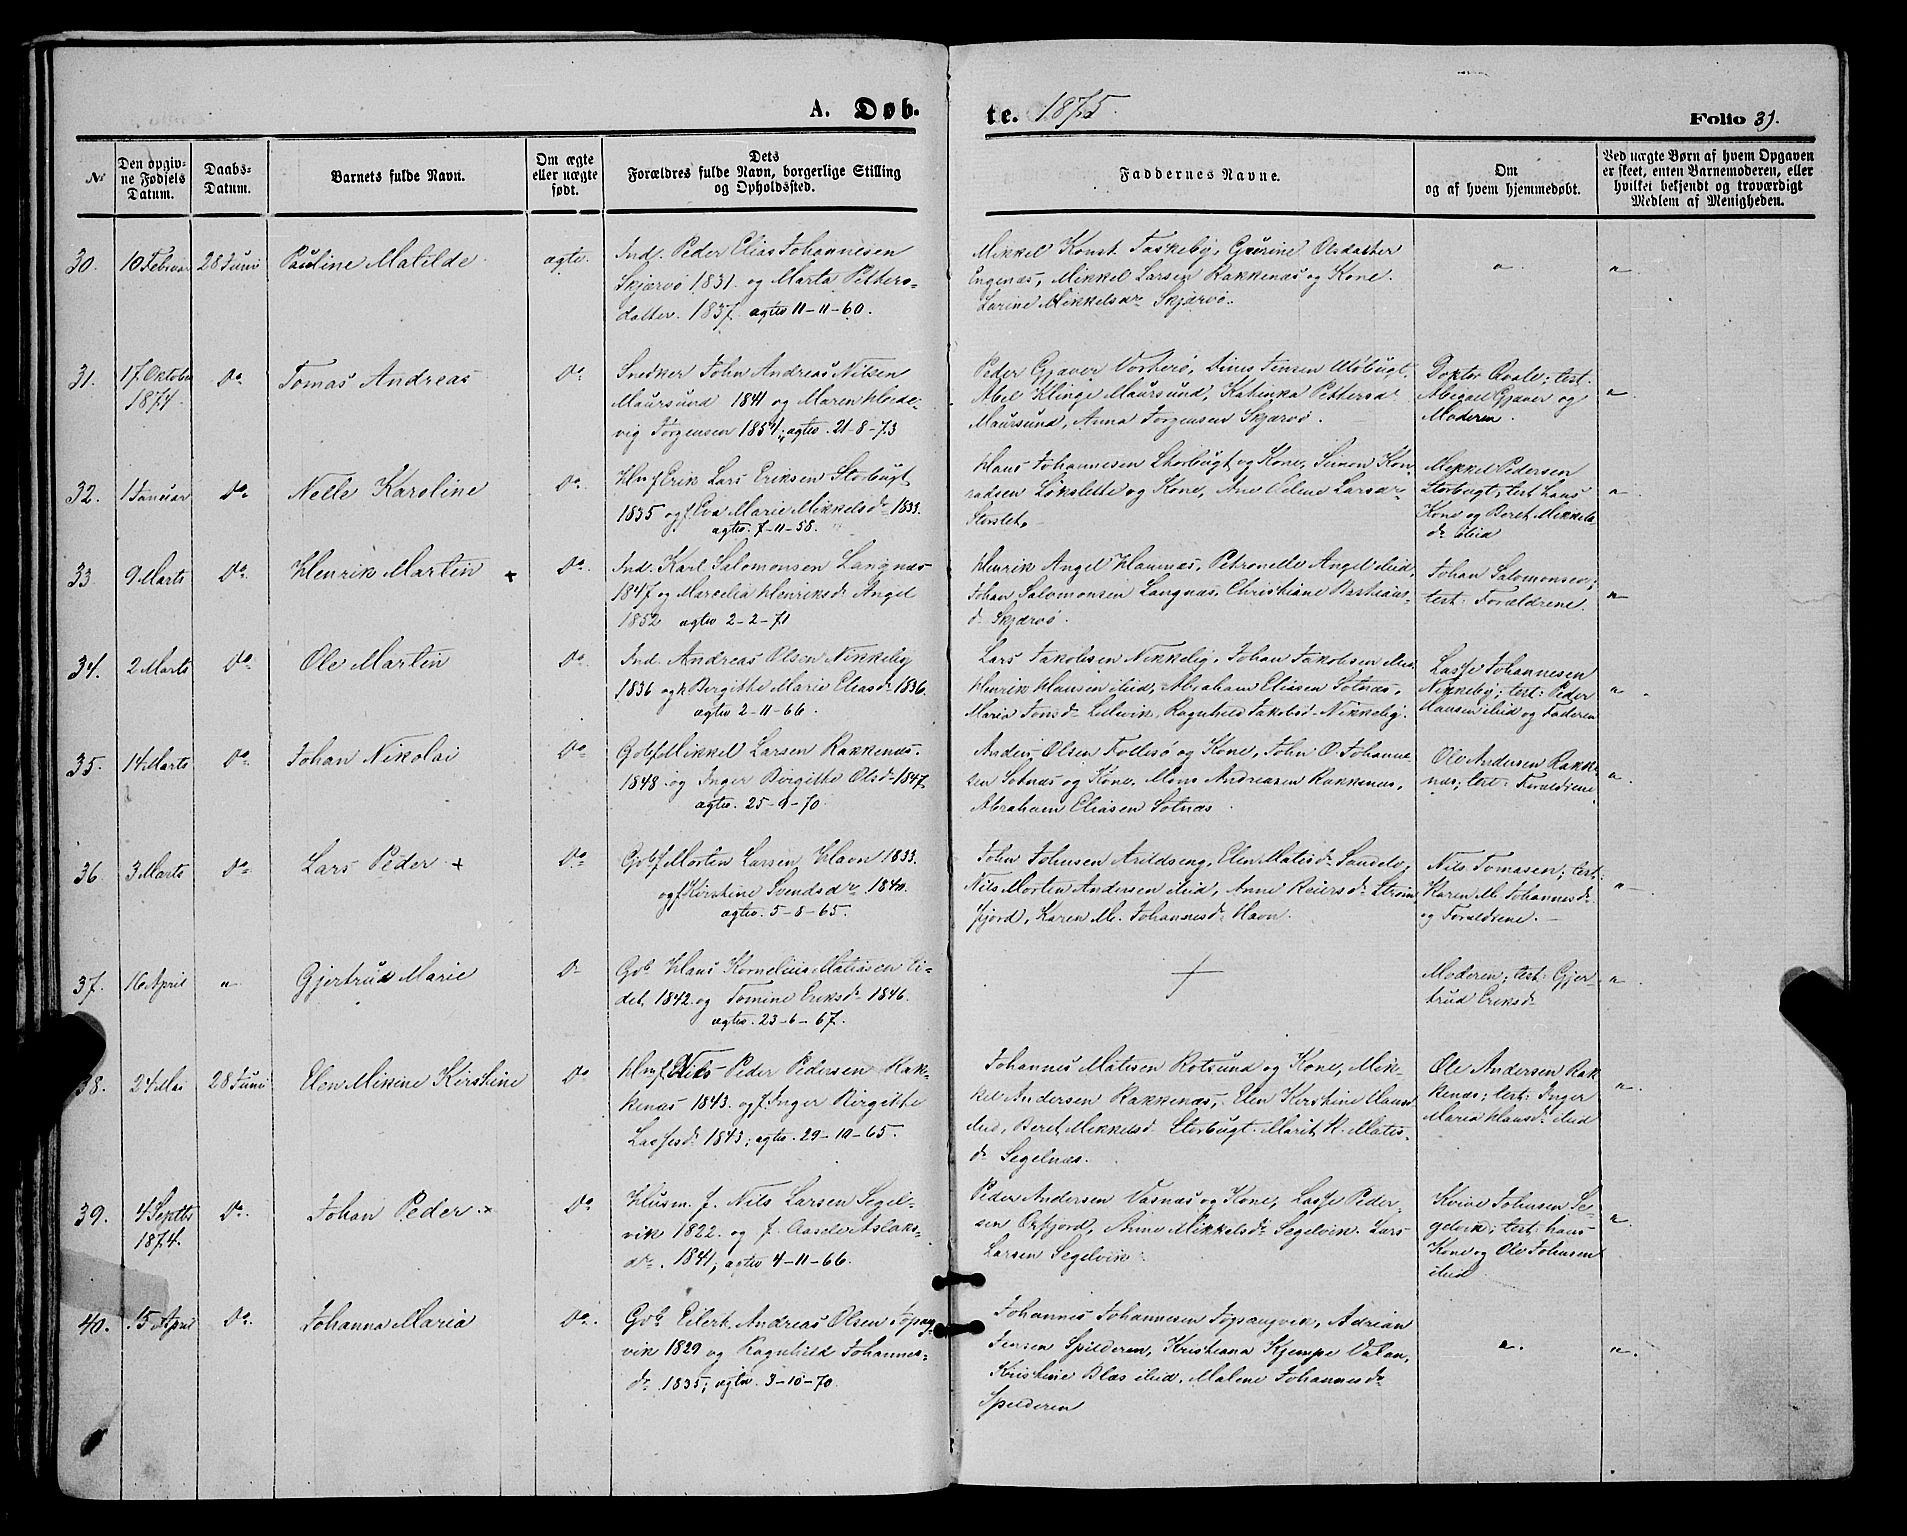 A. Døb-
te. 1875.
Folio 31.
№
Den opgiv-
ne Fødsels
Datum.
Daabs-
Datum.
Barnets fulde Navn.
Om ægte
eller uægte
født.
Dets
Forældres fulde Navn, borgerlige Stilling
og Opholdssted.
Faddernes Navne.
Om
og af hvem hjemmedøbt.
Ved uægte Børn af hvem Opgaven
er skeet, enten Barnemoderen, eller
hvilket bekjendt og troværdigt
Medlem af Menigheden.
30.
10 Februar
28 Juni
Pauline Matilde
ægte.
Ind. Peder Elias Johannesen
Skjærvø 1831. og Marta Petters-
datter. 1837. agtev 11-11-60.
Mikkel Konst. Taskeby, Gurine Olsdatter
Engenæs, Mikkel Larsen Rakkenæs og Kone.
Larine Mikkelsdr Skjærvø.
"
"
31.
17. Oktober
1874.
Do
Tomas Andreas
Do
Snedker John Andreas Nilsen
Maursund 1841 og Maren Hede-
vig Jørgensen 1851; agtev. 21-8-73
Peder Gjæver Vorterø, Jensen
Abel Klinge Maursund, Katinka Pettersd
Maursund, Anna Jørgensen Skjærvø.
Doktor Qvale; test.
Abigael Gjæver og
Moderen
"
32.
1 Januar
Do
Nelle Karoline
Do
Hmf Erik Lars Eriksen Storbugt
1835 og f Eva Marie Mikkelsd 1833.
agtev. 7-11-58.
Hans Johannesen Storbugt og Kone, Simon Kon-
radsen Løkslette og Kone, Ane Elene Larsdr
Storslet.
Mikkel Pedersen
Storbugt; test hans
Kone og Beret Mikkels-
dr ibid
"
33
9 Marts
Do
Henrik Martin +
Do
Ind. Karl Salomonsen Langnæs
1847 og Marcelia Henriksd Angel
1852 agtev 2-2-71
Henrik Angel Havnnæs, Petronelle Angel ibid,
Johan Salomonsen Langnæs, Christiane Bastians-
dr Skjærvø.
Johan Salomonsen;
test: Forældrene.
"
34.
2 Marts
Do
Ole Martin
Do
Ind. Andreas Olsen Nikkeby
1836 og k Bergitte Marie Eliasd 1836.
agtev 2-11-66.
Lars Jakobsen Nikkeby, Johan Jakobsen ibid.
Henrik Hansen ibid, Abraham Eliasen Sotnæs,
Maria Jonsd Lilvik, Ragnhild Jakobsd Nikkeby.
Lasse Johannesen
Nikkeby; test: Peder
Hansen ibid og Faderen
"
35.
14 Marts
Do
Johan Nikolai
Do
Gobf Mikkel Larsen Rakkenæs.
1848 og Inger Bergitte Olsd 1847
agtev. 25-9-70.
Anders Olsen Follesø og Kone, John O. Johanne-
sen Sotnæs og Kone, Mons Andreasen Rakkenæs,
Abraham Eliasen Sotnæs.
Ole Andersen Rakke-
næs; test: Forældrene
"
36.
3 Marts
Do
Lars Peder +
Do
Gobf Morten Larsen Havn 1833.
og f Kirstine Svendsdr. 1840.
agtev. 5-8-65.
John Johnsen Arildseng, Elen Matisd Sandelv,
Nils Morten Andersen ibid, Anne Reiersd Strøm-
fjord, Karen M. Johannesd Havn.
Nils Tomasen; test:
Karen M. Johannesd
og Forældrene.
"
37.
16 April
"
Gjertrud Marie
Do
Gob Hans Kornelius Matissen Ei-
det, 1842. og Tomine Eriksd 1846.
agtev. 23-6-67.
+
Moderen; test: Gjer-
trud Eriksd
"
38.
24 Mai
28 Juni
Elen Mikine Kirstine
Do
Hmf Nils Peder Pedersen Rak-
kenæs 1843. og f. Inger Birgitte
Lassesd 1843; agtev. 29-10-65.
Johannes Matisen Rotsund og Kone, Mik-
kel Andersen Rakkenæs, Elen Kirstine Hansd
ibid, Beret Mikkelsd Storbugt. Marit K. Matis-
dr Segelnæs.
Ole Andersen Rak
kenæs; test: Inger
Maria Hansd ibid
"
39.
4 Septbr
1874.
Do
Johan Peder +
Do
Husm. f. Nils Larsen Segel-
vik 1822 og f. Aaselet Aslaks-
dr. 1841, agtev 4-11-66.
Peder Andersen Vasnæs og Kone, Lasse Peder-
sen Oxfjord, Anne Mikkelsd Segelvik. Lars
Larsen Segelvik.
Johnsen Se-
gelvik; test: hans
Kone og Ole Johnsen
ibid
"
40.
15 April
Do
Johanna Maria
Do
Gob Eilert Andreas Olsen Tøpang-
vik 1829 og Ragnhild Johannes-
dr. 1835; agtev. 3-10-70.
Johannes Johannesen Tøpangvik, Adrian
Jensen Spilderen, Kristiana Kjempe Valan,
Kristine Blæs ibid, Malene Johannesd
Spilderen
"
"